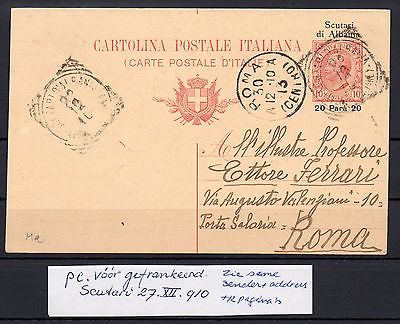 Scutari
di Albania
CARTOLINA POSTALE ITALIANA
(CARTE POSTALE D'ITALIE)
ROMA
30
12·10A
(CENTRO)
10 10
20 Para 20
All'illustre Professore
Ettore Ferrari
Via Augusto Valenziani - 10 -
Porta Salaria
Roma
MR
pc. vóór gefrankeerd.
Scutari 27.XII.910
Zie same
senders address